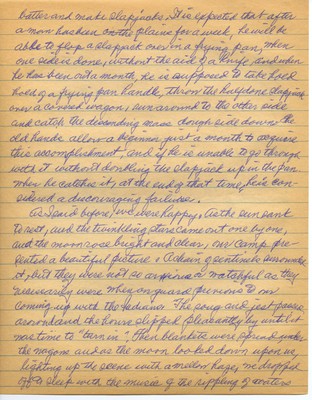 batter and make slapjacks. It is expected that after
a man has been on the plains for a week, he will be
able to flop a slapjack over in a frying pan, when
one side is done, without the aid of a knife, and when
he has been out a month, he is supposed to take hold
hold of a frying pan handle, throw the half done slapjack
over a covered wagon, run around to the other side
and catch the descending mass dough side down. The
old hands allow a beginner just a month to acquire
this accomplishment, and if he is unable to go through
with it without doubling the slapjack up in the pan
when he catches it, at the end of that time, he is con-
sidered a discouraging failure.
As I said before, we were happy. As the sun sank
to rest, and the twinkling stars came out one by one,
and the moon rose bright and clear, our camp pre-
sented a beautiful picture. A chain of sentinels surrounded
it, but they were not so anxious or watchful as they
necessarily were when on guard previous to our
coming up with the Indians. The song and jest passed
around and the hours slipped pleasantly by until it
was time to "turn in". Then blankets were spread under
the wagons and as the moon looked down upon us,
lighting up the scene with a mellow haze, we dropped
off to sleep with the music of the rippling of waters